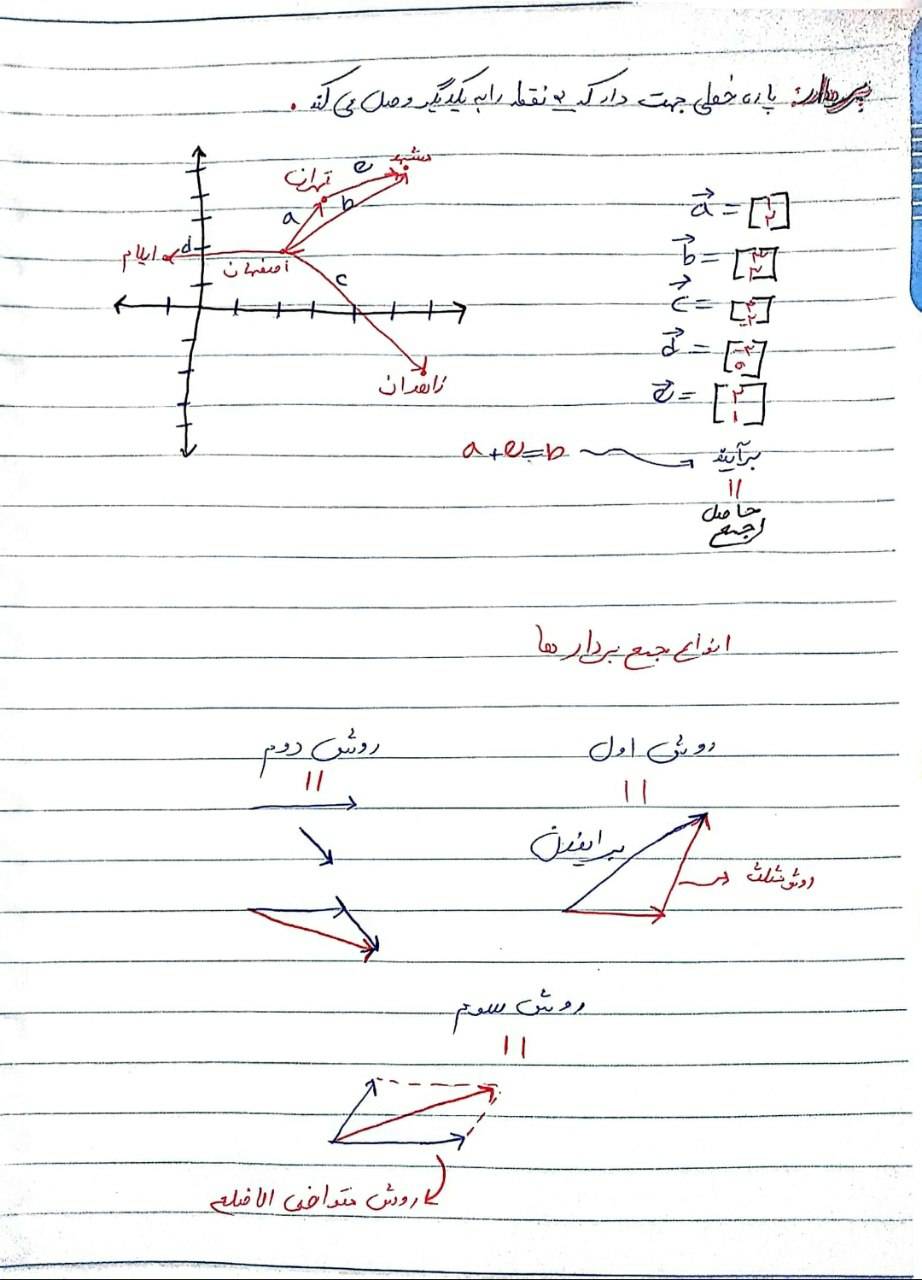 بردار: پاره خطی جهت دار که ۲ نقطه را به یکدیگر وصل می کند.
مشهد
تهران
e
b
a
d
ایلام
اصفهان
c
زاهدان
a = [۱ ۲]
b = [۳ ۳]
c =
d = [-۳ ۰]
e = [۲ ۱]
a + e = b
برآیند
=
حاصل جمع
انواع جمع بردار ها
روش اول
=
روش مثلث
روش دوم
=
روش سوم
=
روش متوازی الاضلاع